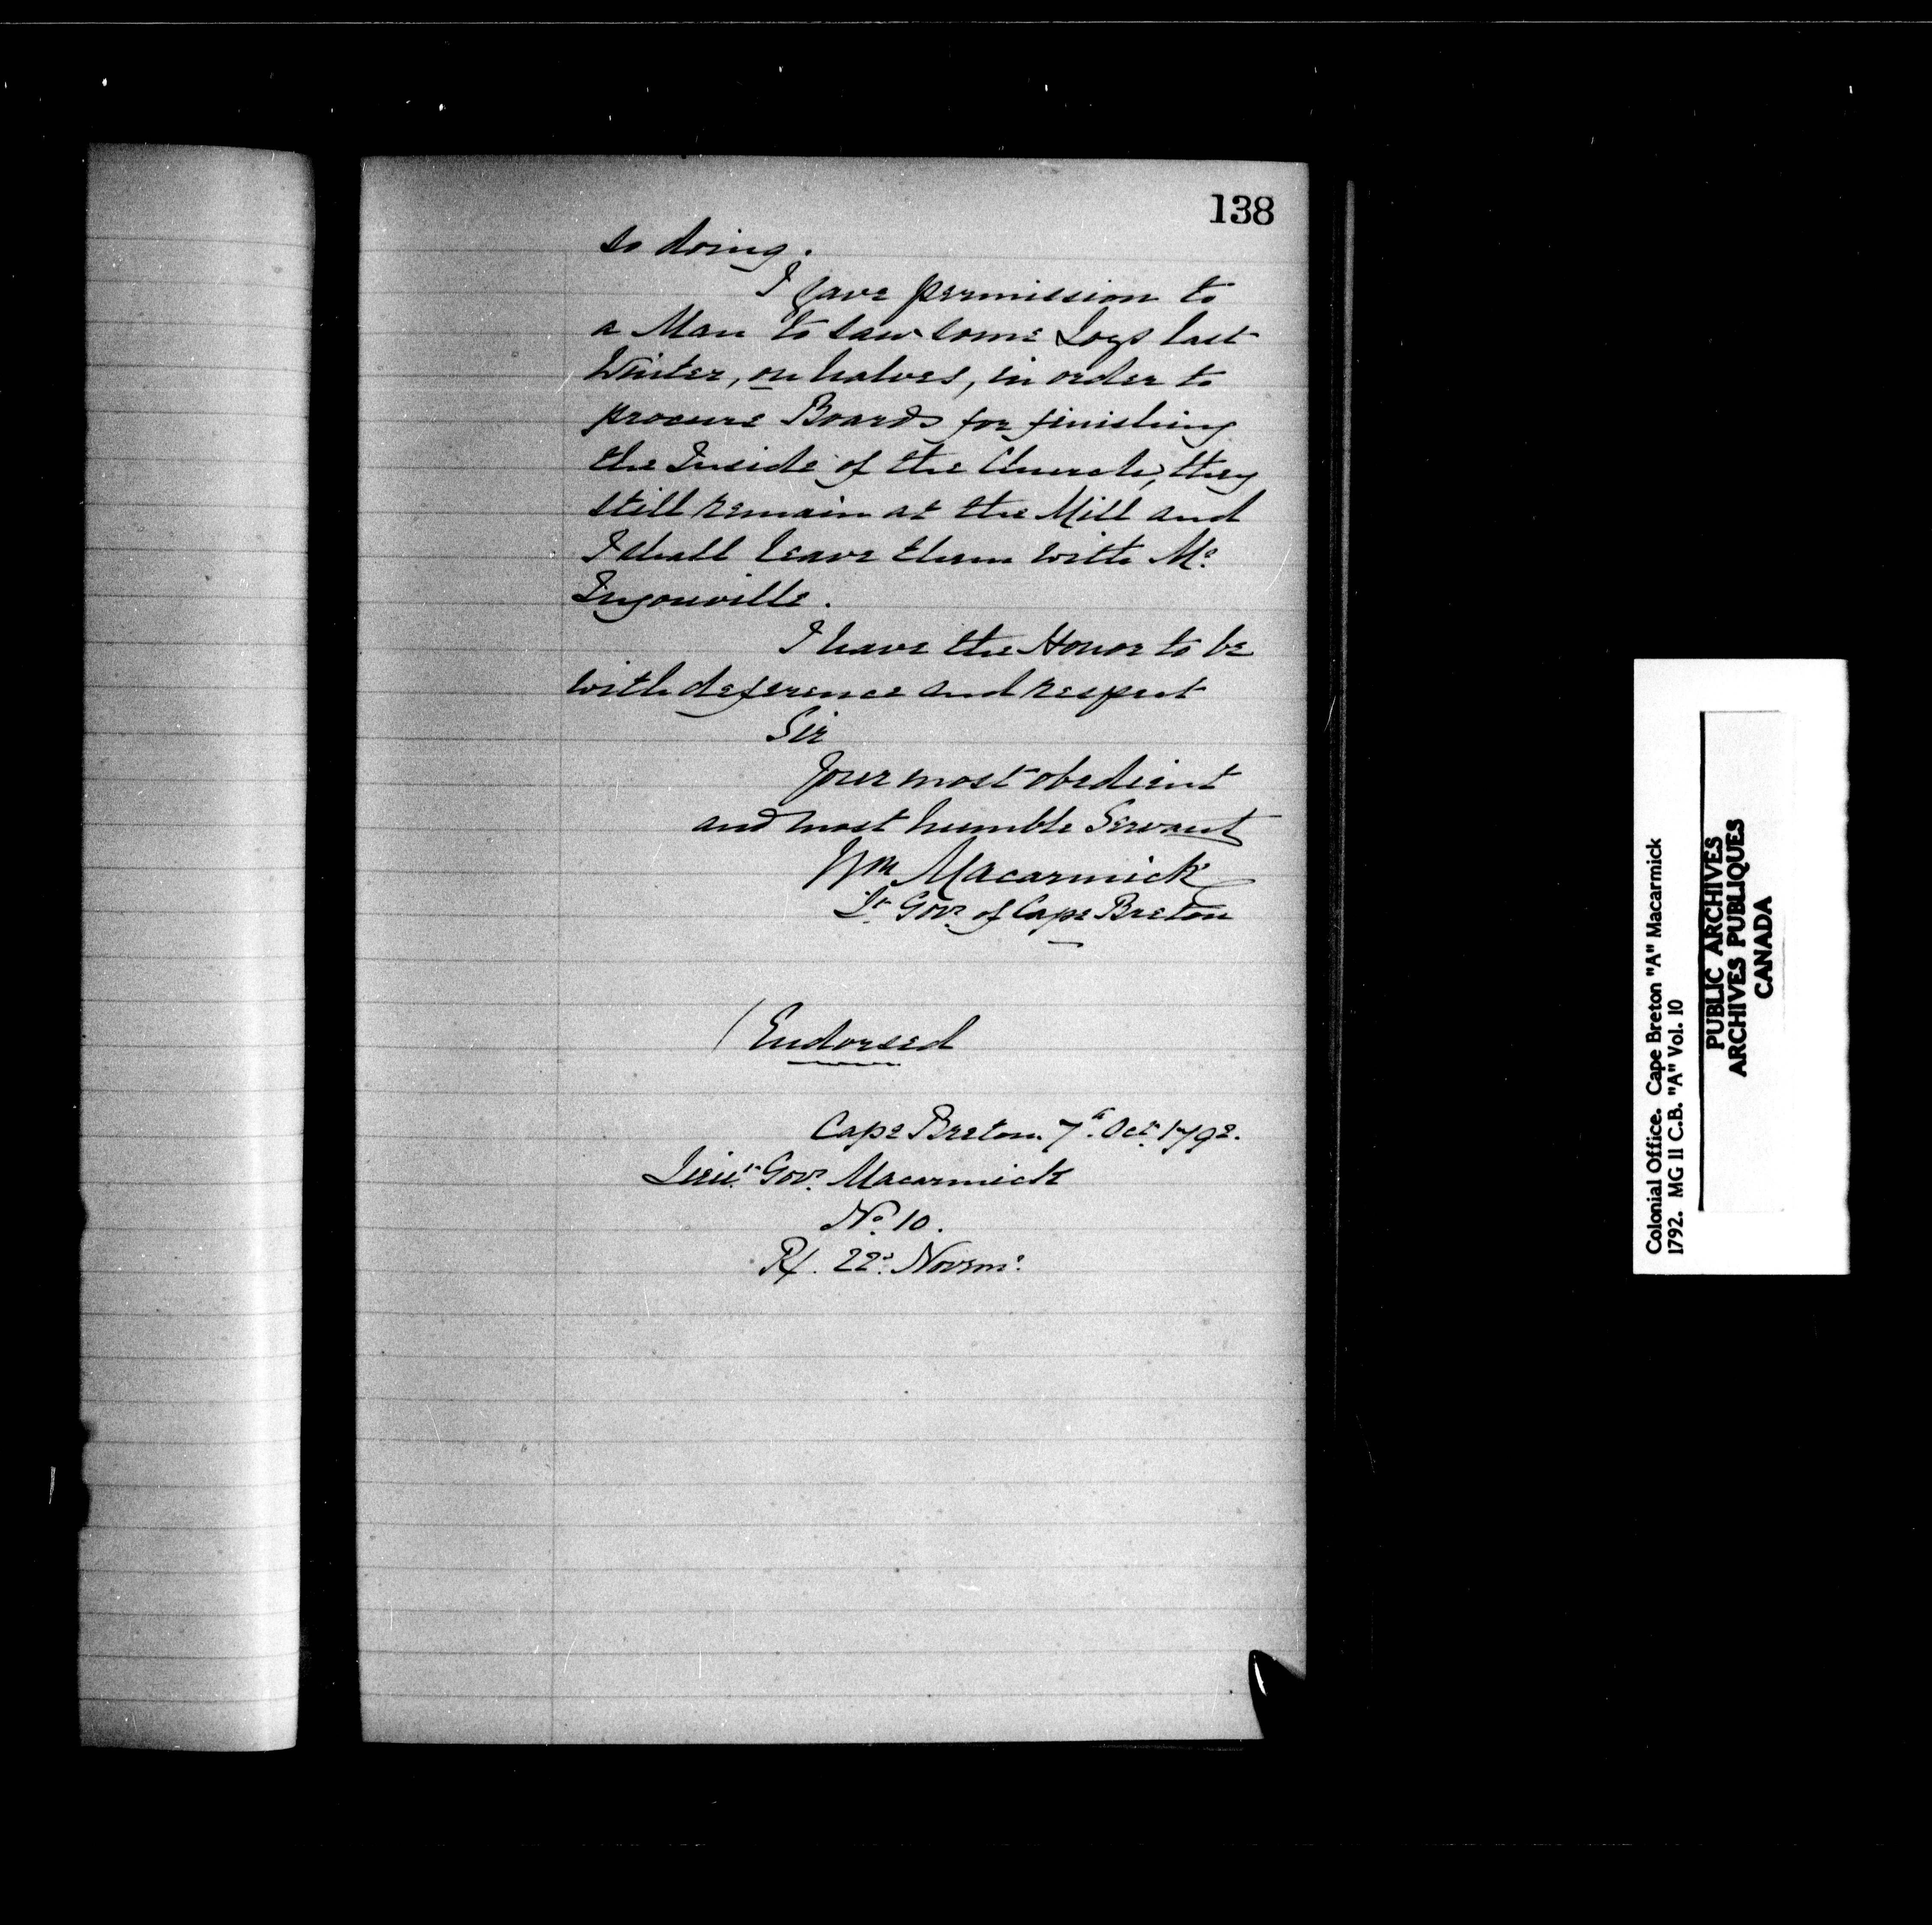 138
so doing.
I gave permission to
a Man to saw some Logs last
Winter, on halves, in order to
procure Boards for finishing
the Inside of the Church, they
still remain at the Mill and
I shall leave them with Mr.
Ingouville.
I have the Honor to be
with deference and respect
Sir
Your most obedient
and most humble Servant
Wm Macarmick
Lt. Govr. of Cape Breton
(Endorsed
Cape Breton. 7th. Octr. 1792.
Lieut. Govr. Macarmick
No. 10.
Rx. 22d. Novemr.
Colonial Office. Cape Breton "A" Macarmick
1792. MG 11 C.B. "A" Vol. 10
PUBLIC ARCHIVES
ARCHIVES PUBLIQUES
CANADA